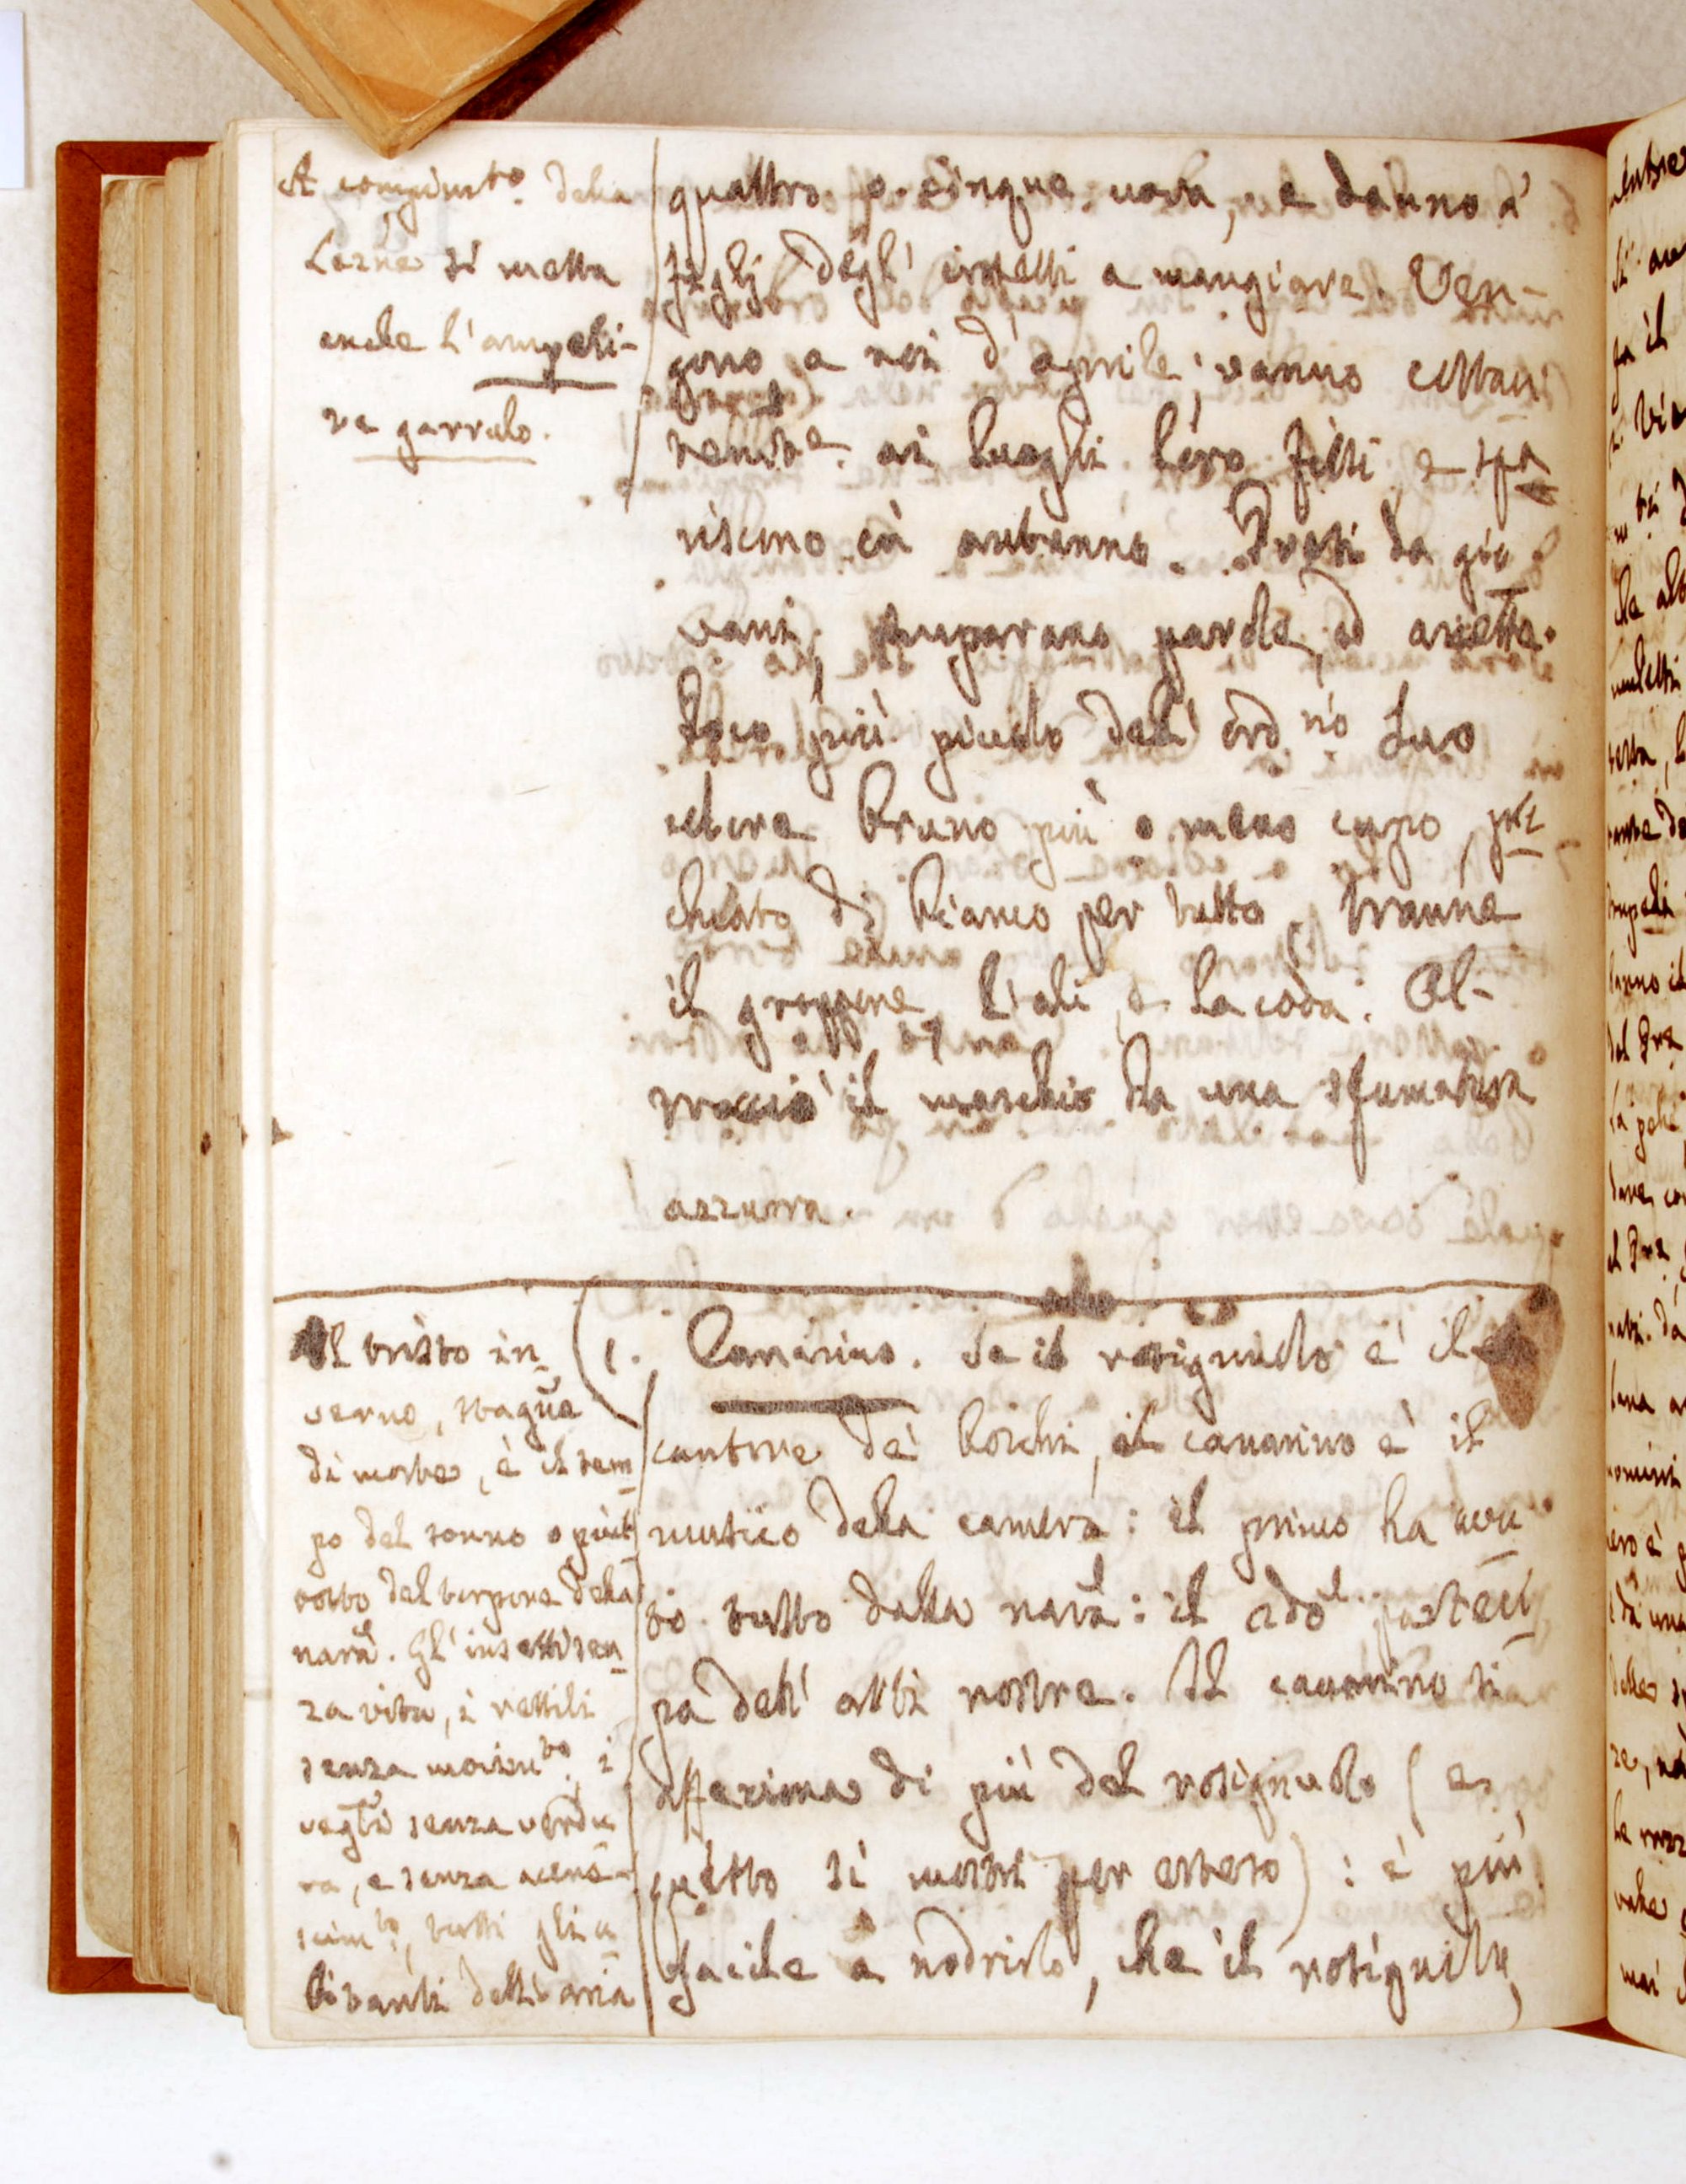 A compim.to della
Lezne si metta
anche l'ampeli-
ve garrulo.
quattro o cinque uova, e danno a'
figlj degl' insetti a mangiare. Ven-
gono a noi d'aprile; vanno
ai luoghi loro fitti e spa
riscono in autunno. Presi da gio
vani, imparano parole, ed ariette.
Poco più piccolo dell' ord.rio suo
colore bruno più o meno cupo, pic
chiato di bianco per tutto, tranne
il groppone, l'ali, e la coda. Ol-
tracciò il maschio ha una sfumatura
azzurra.
Il tristo in
verno, stagne
di morte, è il tem
po del sonno o piut
tosto del torpore della
nara. Gl' insetti sen
za vita, i rettili
senza movim.to, i
vegti senza verdu
ra, e senza acere
scim.to, tutti gli a
bitanti dell'aria
1. Canarino. Se il rosignuolo è il
cantore de' boschi, il canarino è il
musico della camera: il primo ha avu
to tutto dalla nara: il 2do parteci
pa dell' arti nostre. Il canarino si
affeziona di più del rosignuolo (e
questo si mostrò per esteso): è più
facile a nodrirlo, che il rosignuolo,